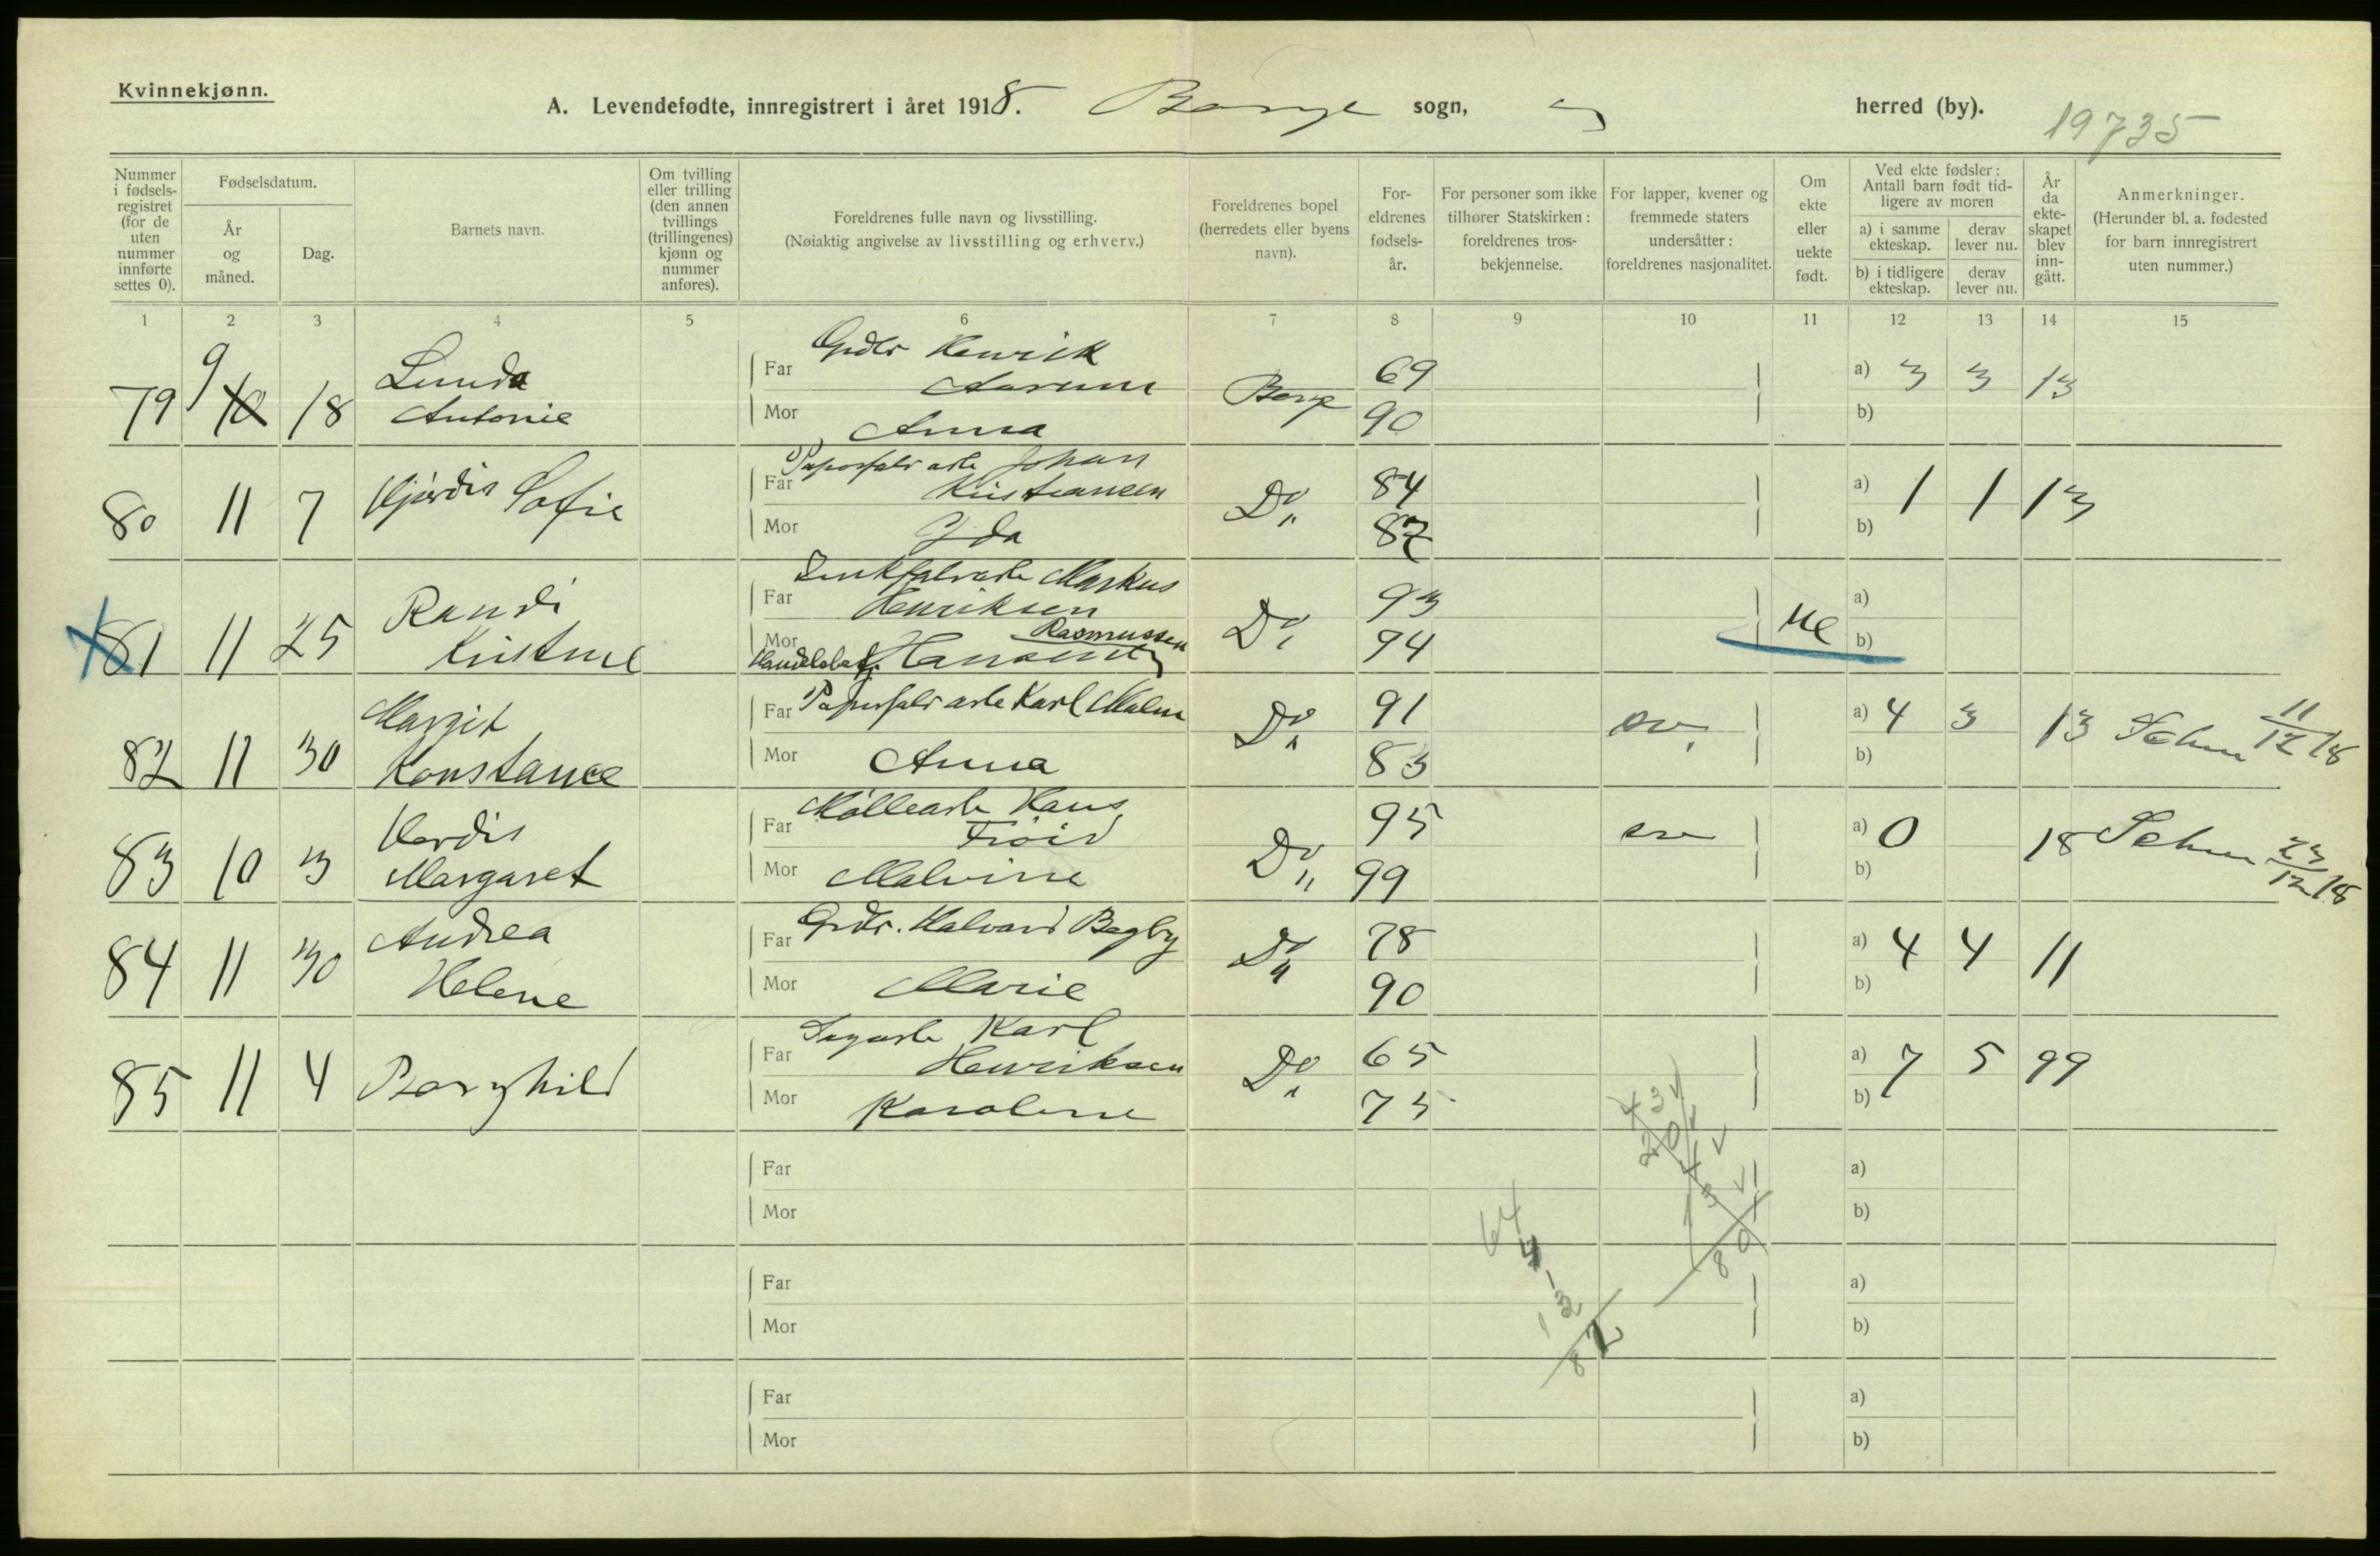 Kvinnekjønn.
A. Levendefødte, innregistrert i året 1918. Borge sogn, herred (by).
19735
Nummer i fødsels-registret (for de uten nummer innførte settes 0).
Fødselsdatum.
År og måned.
Dag.
Barnets navn.
Om tvilling eller trilling (den annen tvillings (trillingenes) kjønn og nummer anføres).
Foreldrenes fulle navn og livsstilling.
(Nøiaktig angivelse av livsstilling og erhverv.)
Foreldrenes bopel (herredets eller byens navn).
For-eldrenes fødsels-år.
For personer som ikke tilhører Statskirken: foreldrenes tros-bekjennelse.
For lapper, kvener og fremmede staters undersåtter: foreldrenes nasjonalitet.
Om ekte eller uekte født.
Ved ekte fødsler: Antall barn født tid-ligere av moren
a) i samme ekteskap.
derav lever nu.
b) i tidligere ekteskap.
derav lever nu.
År da ekte-skapet blev inn-gått.
Anmerkninger.
(Herunder bl. a. fødested for barn innregistrert uten nummer.)
1 2 3 4 5 6 7 8 9 10 11 12 13 14 15
79 9 10 18 Lunda Antonie
Far Grdbr Henrik Aarum 69 a) 3 3 13
Mor Anna Borge 90 b)
80 11 7 Hjørdis Sofie
Far Papirfabr arb Johan Kristiansen Do 84 a) 1 1 13
Mor Ida 87 b)
81 11 25 Randi Kristine
Far Zinkfabrarb Markus Henriksen Do 93 a)
Mor Rasmussen 94 ue b)
82 11 30 Margit Konstance
Far Papirfabr arb Karl Malm Do 91 sv. a) 4 3 13 11/12 18
Mor Anna 83 b)
83 10 3 Herdis Margaret
Far Mølleearb Hans Fröid Do 95 sv a) 0 18 23/12 18
Mor Malvine 99 b)
84 11 30 Andrea Helene
Far Grdbr. Halvard Bagby Do 78 a) 4 4 11
Mor Marie 90 b)
85 11 4 Borghild
Far Sagarb Karl Henriksen Do 65 a) 7 5 99
Mor Karoline 75 b)
Far a)
Mor b)
Far a)
Mor b)
Far a)
Mor b)
43
20
4
13
80
64
4
1
13
82